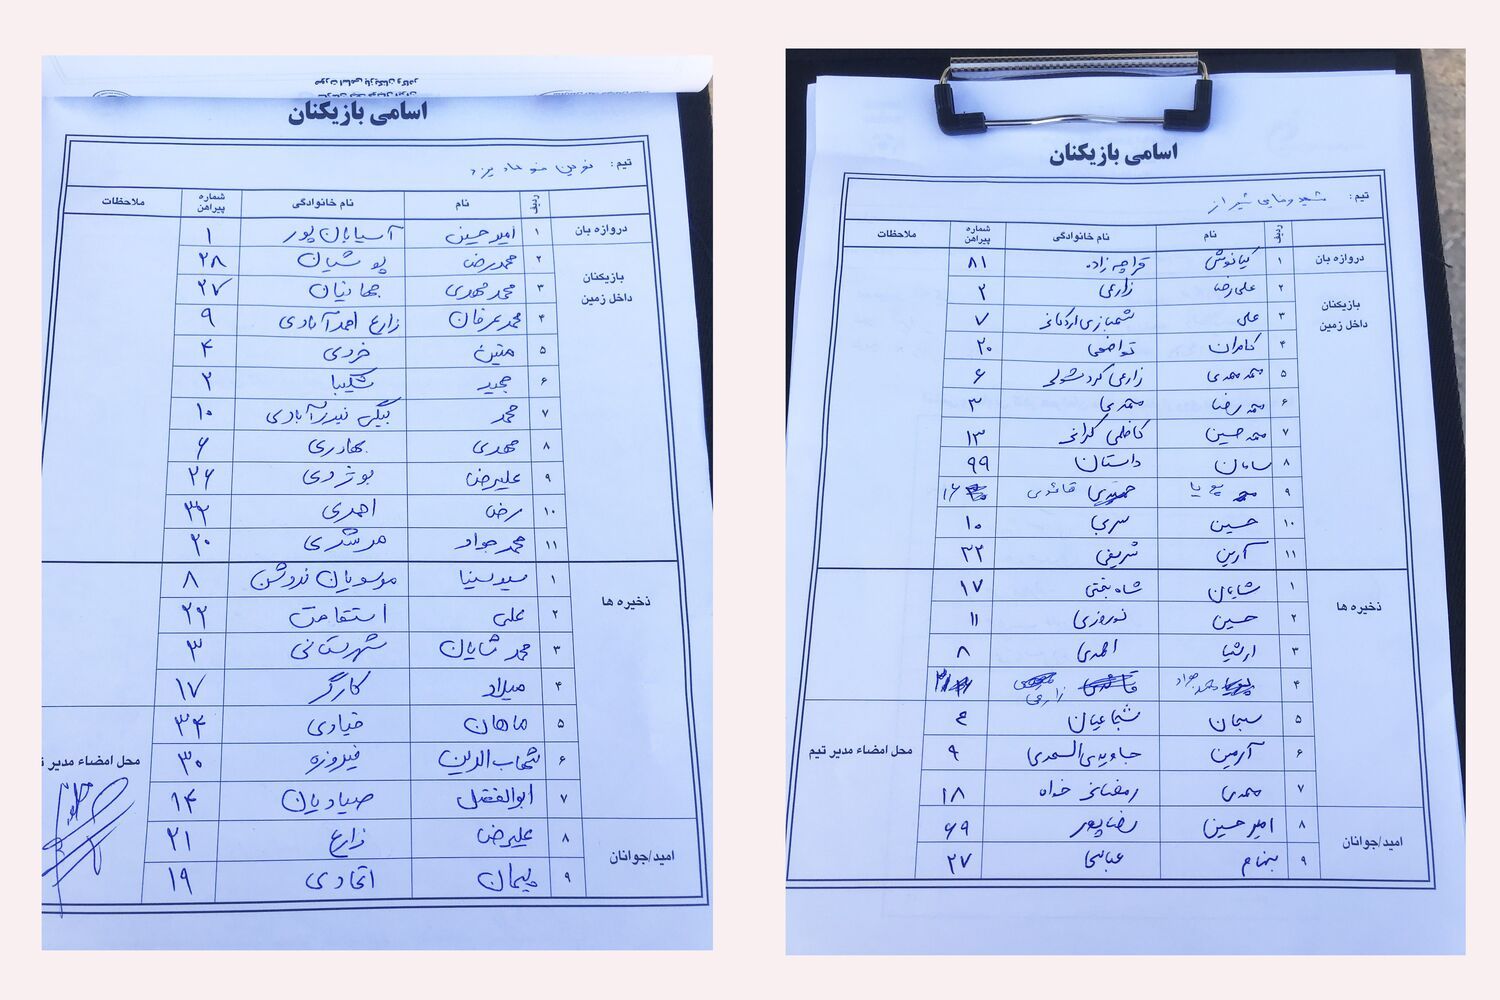 اسامی بازیکنان
تیم: نوین متوحد یزد
ردیف نام نام خانوادگی شماره پیراهن ملاحظات
دروازه بان
۱ امیرحسین آسیابان پور ۱
بازیکنان داخل زمین
۲ محمدرضا پوشیان ۲۸
۳ محمدمهدی جهانیان ۲۷
۴ محمدعرفان زارع احمدآبادی ۹
۵ متین خردی ۴
۶ مجید شکیبا ۲
۷ محمد بیگی فیروزآبادی ۱۰
۸ مهدی بهادری ۶
۹ علیرضا بوژدی ۲۶
۱۰ رضا احمدی ۳۳
۱۱ محمدجواد مرشدی ۲۰
ذخیره ها
۱ سیدسینا موسویان ندوشن ۸
۲ علی استقامت ۲۲
۳ محمدشایان شهرستانی ۳
۴ میلاد کارگر ۱۷
۵ ماهان قیادی ۳۴
۶ شهاب‌الدین فیروزه ۳۰
۷ ابوالفضل صیادیان ۱۴
امید/جوانان
۸ علیرضا زارع ۲۱
۹ پیمان اتحادی ۱۹
محل امضاء مدیر
اسامی بازیکنان
تیم: شهید رضایی شیراز
ردیف نام نام خانوادگی شماره پیراهن ملاحظات
دروازه بان
۱ کیانوش قراچه زاده ۸۱
بازیکنان داخل زمین
۲ علی رضا زارعی ۲
۳ علی شهبازی اردکانی ۷
۴ کامران تواضعی ۲۰
۵ محمدمهدی زارعی کردشولی ۶
۶ محمدرضا محمدی ۳
۷ محمدحسین کاظمی کرانی ۱۳
۸ سامان داستان ۹۹
۹ پویا قائدی ۱۶
۱۰ حسین سربی ۱۰
۱۱ آرین شریفی ۲۲
ذخیره ها
۱ شایان شاه بختی ۱۷
۲ حسین نوروزی ۱۱
۳ ارشیا احمدی ۸
۴ محمدجواد زارعی
۵ سبحان شجاعیان ۴
۶ آرمین جاویدی السعدی ۹
۷ مهدی رمضانی خواه ۱۸
امید/جوانان
۸ امیرحسین رضاپور ۶۹
۹ بهنام عباسی ۲۷
محل امضاء مدیر تیم